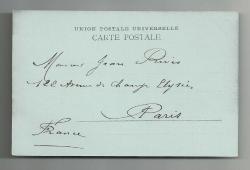 UNION POSTALE UNIVERSELLE
CARTE POSTALE
Jean
122 Avenue de Champs Elysées
Paris
France